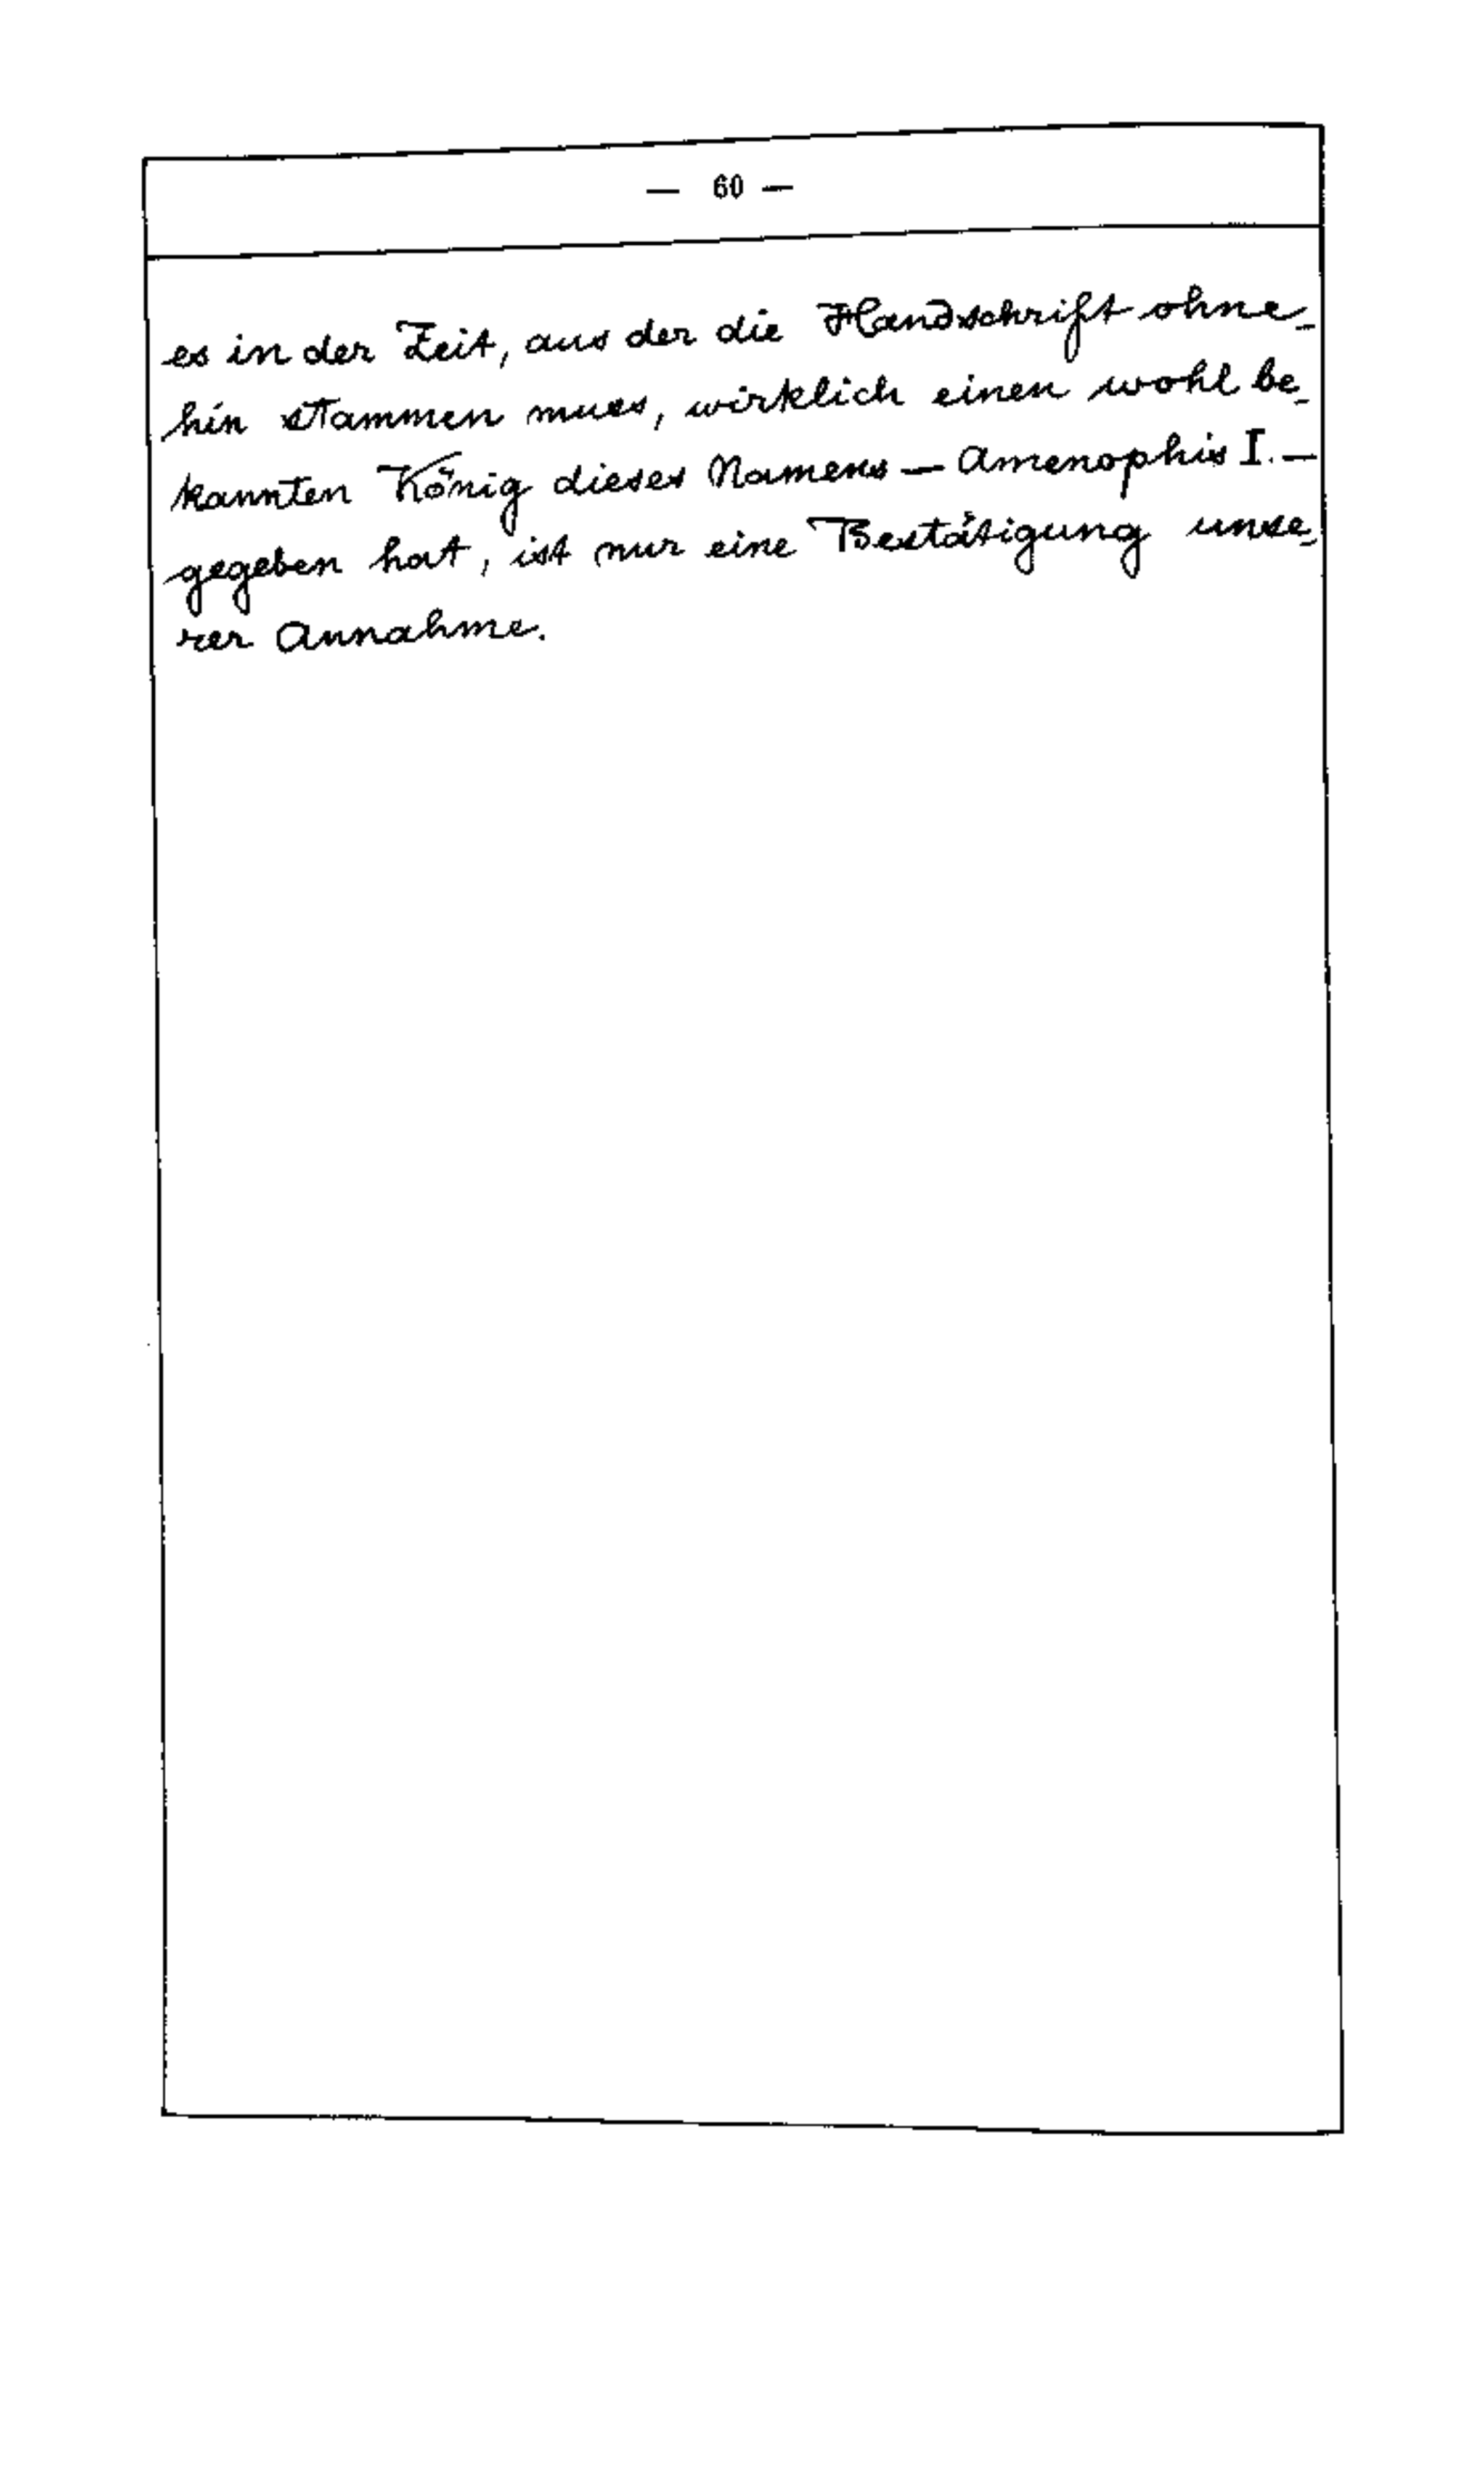 — 60 —
es in der Zeit, aus der die Handschrift ohne-
hin stammen muss, wirklich einen wohl be-
kannten König dieses Namens — Amenophis I. —
gegeben hat, ist nur eine Bestätigung unse-
rer Annahme.